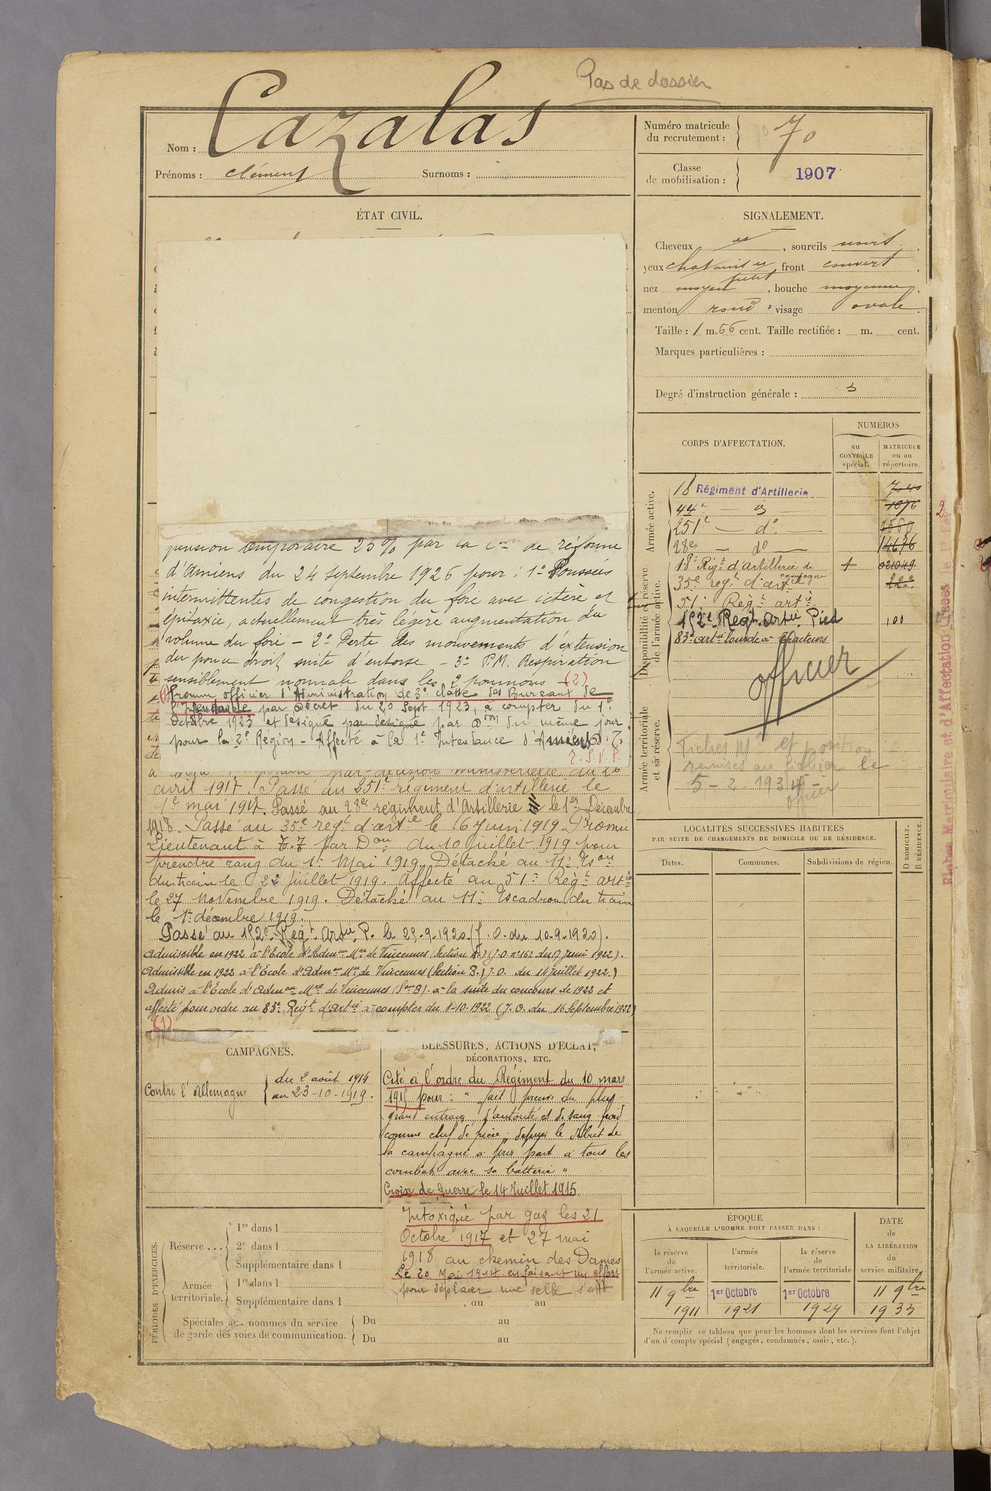 Pas de dossier
Nom : Cazalas
Prénoms : clément Surnoms :
Numéro matricule du recrutement : 70
Classe de mobilisation : 1907
ÉTAT CIVIL.
SIGNALEMENT.
Cheveux , sourcils noirs
yeux , front couvert
nez moyen petit , bouche moyenne
menton rond visage ovale
Taille : 1 m. 66 cent. Taille rectifiée : m. cent.
Marques particulières :
Degré d'instruction générale : 3
pension temporaire 25% par la Con de réforme
d'Amiens du 24 septembre 1926 pour : 1° Poussées
intermittentes de congestion du foie avec ictère et
épistaxie, actuellement très légère augmentation du
volume du foie – 2° Perte des mouvements d'extension
du pouce droit, suite d'entorse – 3° P.M. Respiration
sensiblement normale dans les 2 poumons – (2)
(1) Promu officier d'Administration de 3e classe des Bureaux de
l'Intendance par décret du 20 Sept 1923, à compter du 1er
Octobre 1923 et désigné par Don du même jour
pour la 2e Région – Affecté à la 1e Intendance d'Amiens
T.S.V.P.
par décision ministérielle du
avril 1917. Passé au 251e régiment d'artillerie le
1er mai 1917. Passé au 28e régiment d'Artillerie le 1er Décembre
1918. Passé au 35e régt d'artie le 16 juin 1919. Promu
Lieutenant à T.T. par Don du 10 juillet 1919 pour
prendre rang du 1er Mai 1919. Détaché au 11e Eson
du train le 22 juillet 1919. Affecté au 51e Régt artie
le 27 novembre 1919. Détaché au 11e Escadron du train
le 1er décembre 1919.
Passé au 152e Régt Artie P. le 23.9.1920 (J.O. du 10.9.1920).
Admissible en 1922 à l'Ecole d'Admon Mre de Vincennes (Section B) (J.O. no 162 du 17 juin 1922).
Admissible en 1922 à l'Ecole d'Admon Mre de Vincennes (Section B.) (J.O. du 14 juillet 1922.)
Admis à l'Ecole d'Admon Mre de Vincennes (Son B) à la suite du concours de 1922 et
affecté pour ordre au 83e Régt d'Artie à compter du 1-10-1922 (J.O. du 16 Septembre 1922)
(1)
CORPS D'AFFECTATION.
NUMÉROS
au CONTRÔLE spécial.
MATRICULE ou au répertoire.
Armée active.
18 Régiment d'Artillerie
44e — d°
1076
251e — d°
1580
28e — d°
14676
Disponibilité et réserve de l'armée active.
18e Régt d'artillerie de campagne +
35e régt d'artie
51e Régt artie
152e Régt Artie Pied 101
83e artie lourde à tracteurs
officier
Armée territoriale et sa réserve.
Fiches M et position
remises au fichier le
5-2-1934
officier
Fiches Matriculaire et d'Affectation
LOCALITÉS SUCCESSIVES HABITÉES
PAR SUITE DE CHANGEMENTS DE DOMICILE OU DE RÉSIDENCE.
Dates. Communes. Subdivisions de région.
D DOMICILE. R RÉSIDENCE.
CAMPAGNES.
Contre l'Allemagne { du 2 août 1914
au 23-10-1919.
BLESSURES, ACTIONS D'ÉCLAT,
DÉCORATIONS, ETC.
Cité à l'ordre du Régiment du 10 mars
1915 pour : " fait preuve du plus
grand entrain, d'autorité et de sang froid
comme chef de pièce ; depuis le début de
la campagne a pris part à tous les
combats avec sa batterie "
Croix de Guerre le 14 Juillet 1915.
Intoxiqué par gaz les 21
Octobre 1917 et 27 mai
1918 au chemin des Dames
Le 20 Mai 1914 en faisant un effort
pour déplacer une selle s'est
PÉRIODES D'EXERCICES.
Réserve ... 1re dans l
2e dans l
Supplémentaire dans l
Armée territoriale. 1re dans l
Supplémentaire dans l , au au
Spéciales aux hommes du service
de garde des voies de communication.
Du au
Du au
ÉPOQUE
À LAQUELLE L'HOMME DOIT PASSER DANS :
la réserve de l'armée active.
l'armée territoriale.
la réserve de l'armée territoriale
DATE de LA LIBÉRATION du service militaire.
11 9bre 1911
1er Octobre 1921
1er Octobre 1927
11 9bre 1935
Ne remplir ce tableau que pour les hommes dont les services font l'objet
d'un compte spécial (engagés, condamnés, omis, etc.).